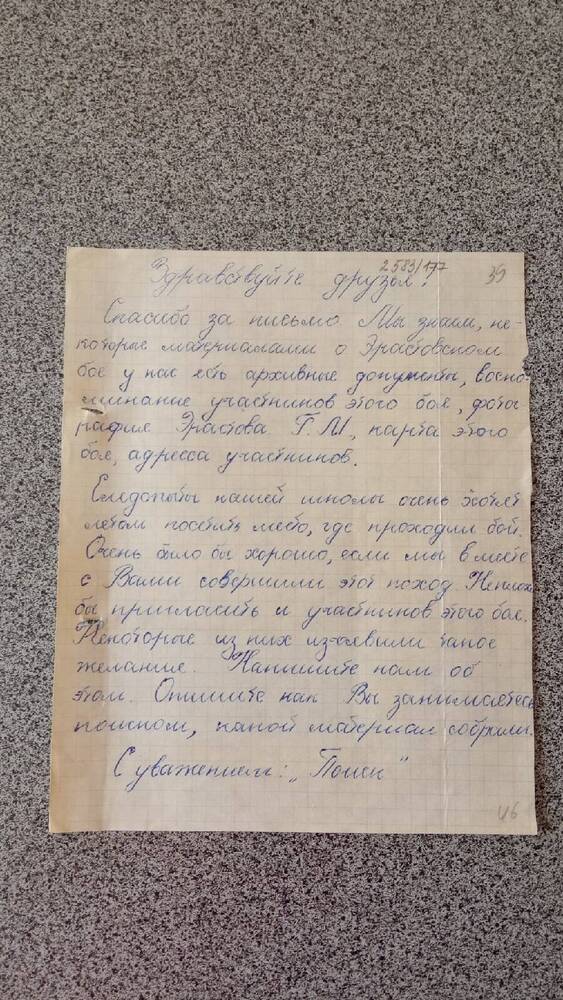 2583/177
39
Здравствуйте друзья!
Спасибо за письмо. Мы знаем, не-
которые материалами о Эрастовском
бое у нас есть архивные документы, воспо-
минание участников этого боя, фотог
рафия Эрастова Г.М, карта этого
боя, адресса участников.
Следопыты нашей школы очень хотят
летом посетить место, где проходил бой.
Очень было бы хорошо, если мы вместе
с Вами совершили этот поход. Неплохо
бы пригласить и участников этого боя.
Некоторые из них изъявили такое
желание. Напишите нам об
этом. Опишите как Вы занимаетесь
поиском, какой материал собрали.
С уважением: „Поиск"
46